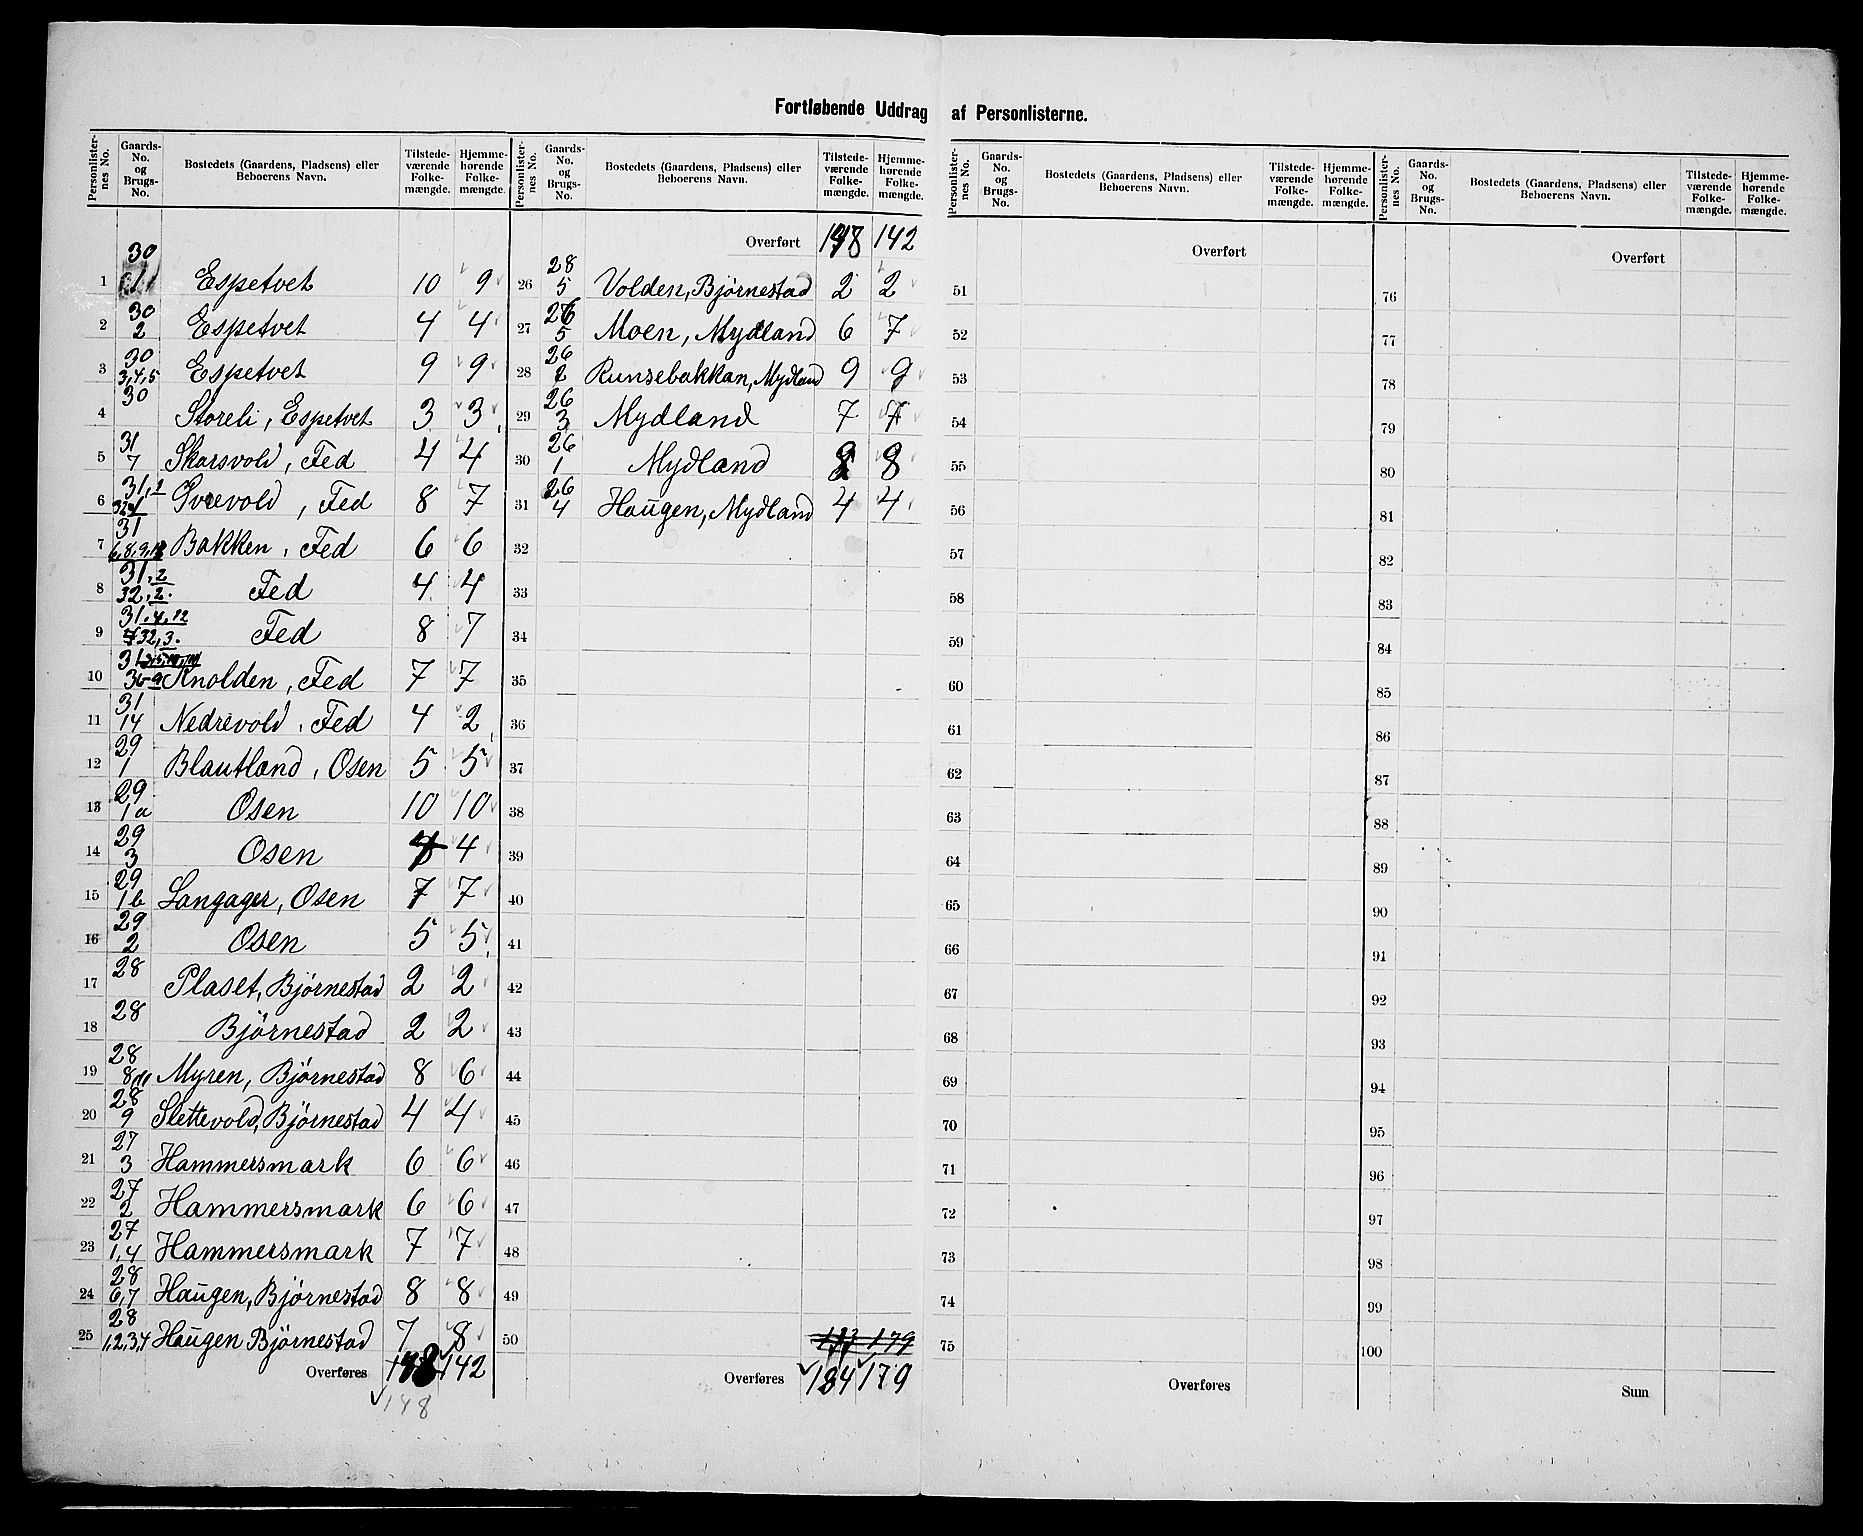 Fortløbende Uddrag af Personlisterne.
Personlister-nes No. Gaards-No. og Brugs-No. Bostedets (Gaardens, Pladsens) eller Beboerens Navn. Tilstede-værende Folke-mængde. Hjemme-hørende Folke-mængde.
1 30 Espetvet 10 9
2 30 2 Espetvet 4 4
3 30 3,4,5 Espetvet 9 9
4 30 Storeli, Espetvet 3 3
5 31 7 Skarsvold, Fed 4 4
6 31, Yvrevold, Fed 8 7
7 31 6,8,9, Bakken, Fed 6 6
8 31,2 32,2. Fed 4 4
9 31.4,12 32,3. Fed 8 7
10 31 Knolden, Fed 7 7
11 31 14 Nedrevold, Fed 4 2
12 29 1 Blautland, Osen 5 5
13 29 1a Osen 10 10
14 29 3 Osen 4 4
15 29 1b Langager, Osen 7 7
16 29 2 Osen 5 5
17 28 Plaset, Bjørnestad 2 2
18 28 Bjørnestad 2 2
19 28 8,11 Myren, Bjørnestad 8 6
20 28 9 Slettevold, Bjørnestad 4 4
21 27 3 Hammersmark 6 6
22 27 2 Hammersmark 6 6
23 27 1,4 Hammersmark 7 7
24 28 6,7 Haugen, Bjørnestad 8 8
25 28 1,2,3,4 Haugen Bjørnestad 7 8
Overføres 148 142
148
Personlister-nes No. Gaards-No. og Brugs-No. Bostedets (Gaardens, Pladsens) eller Beboerens Navn. Tilstede-værende Folke-mængde. Hjemme-hørende Folke-mængde.
Overført 148 142
26 28 5 Volden, Bjørnestad 2 2
27 26 5 Moen, Mydland 6 7
28 26 2 Runsebakkan, Mydland 9 9
29 26 3 Mydland 7 7
30 26 1 Mydland 8 8
31 26 4 Haugen, Mydland 4 4
32
33
34
35
36
37
38
39
40
41
42
43
44
45
46
47
48
49
50 179
Overføres 184 179
Personlister-nes No. Gaards-No. og Brugs-No. Bostedets (Gaardens, Pladsens) eller Beboerens Navn. Tilstede-værende Folke-mængde. Hjemme-hørende Folke-mængde.
Overført
51
52
53
54
55
56
57
58
59
60
61
62
63
64
65
66
67
68
69
70
71
72
73
74
75
Overføres
Personlister-nes No. Gaards-No. og Brugs-No. Bostedets (Gaardens, Pladsens) eller Beboerens Navn. Tilstede-værende Folke-mængde. Hjemme-hørende Folke-mængde.
Overført
76
77
78
79
80
81
82
83
84
85
86
87
88
89
90
91
92
93
94
95
96
97
98
99
100
Sum